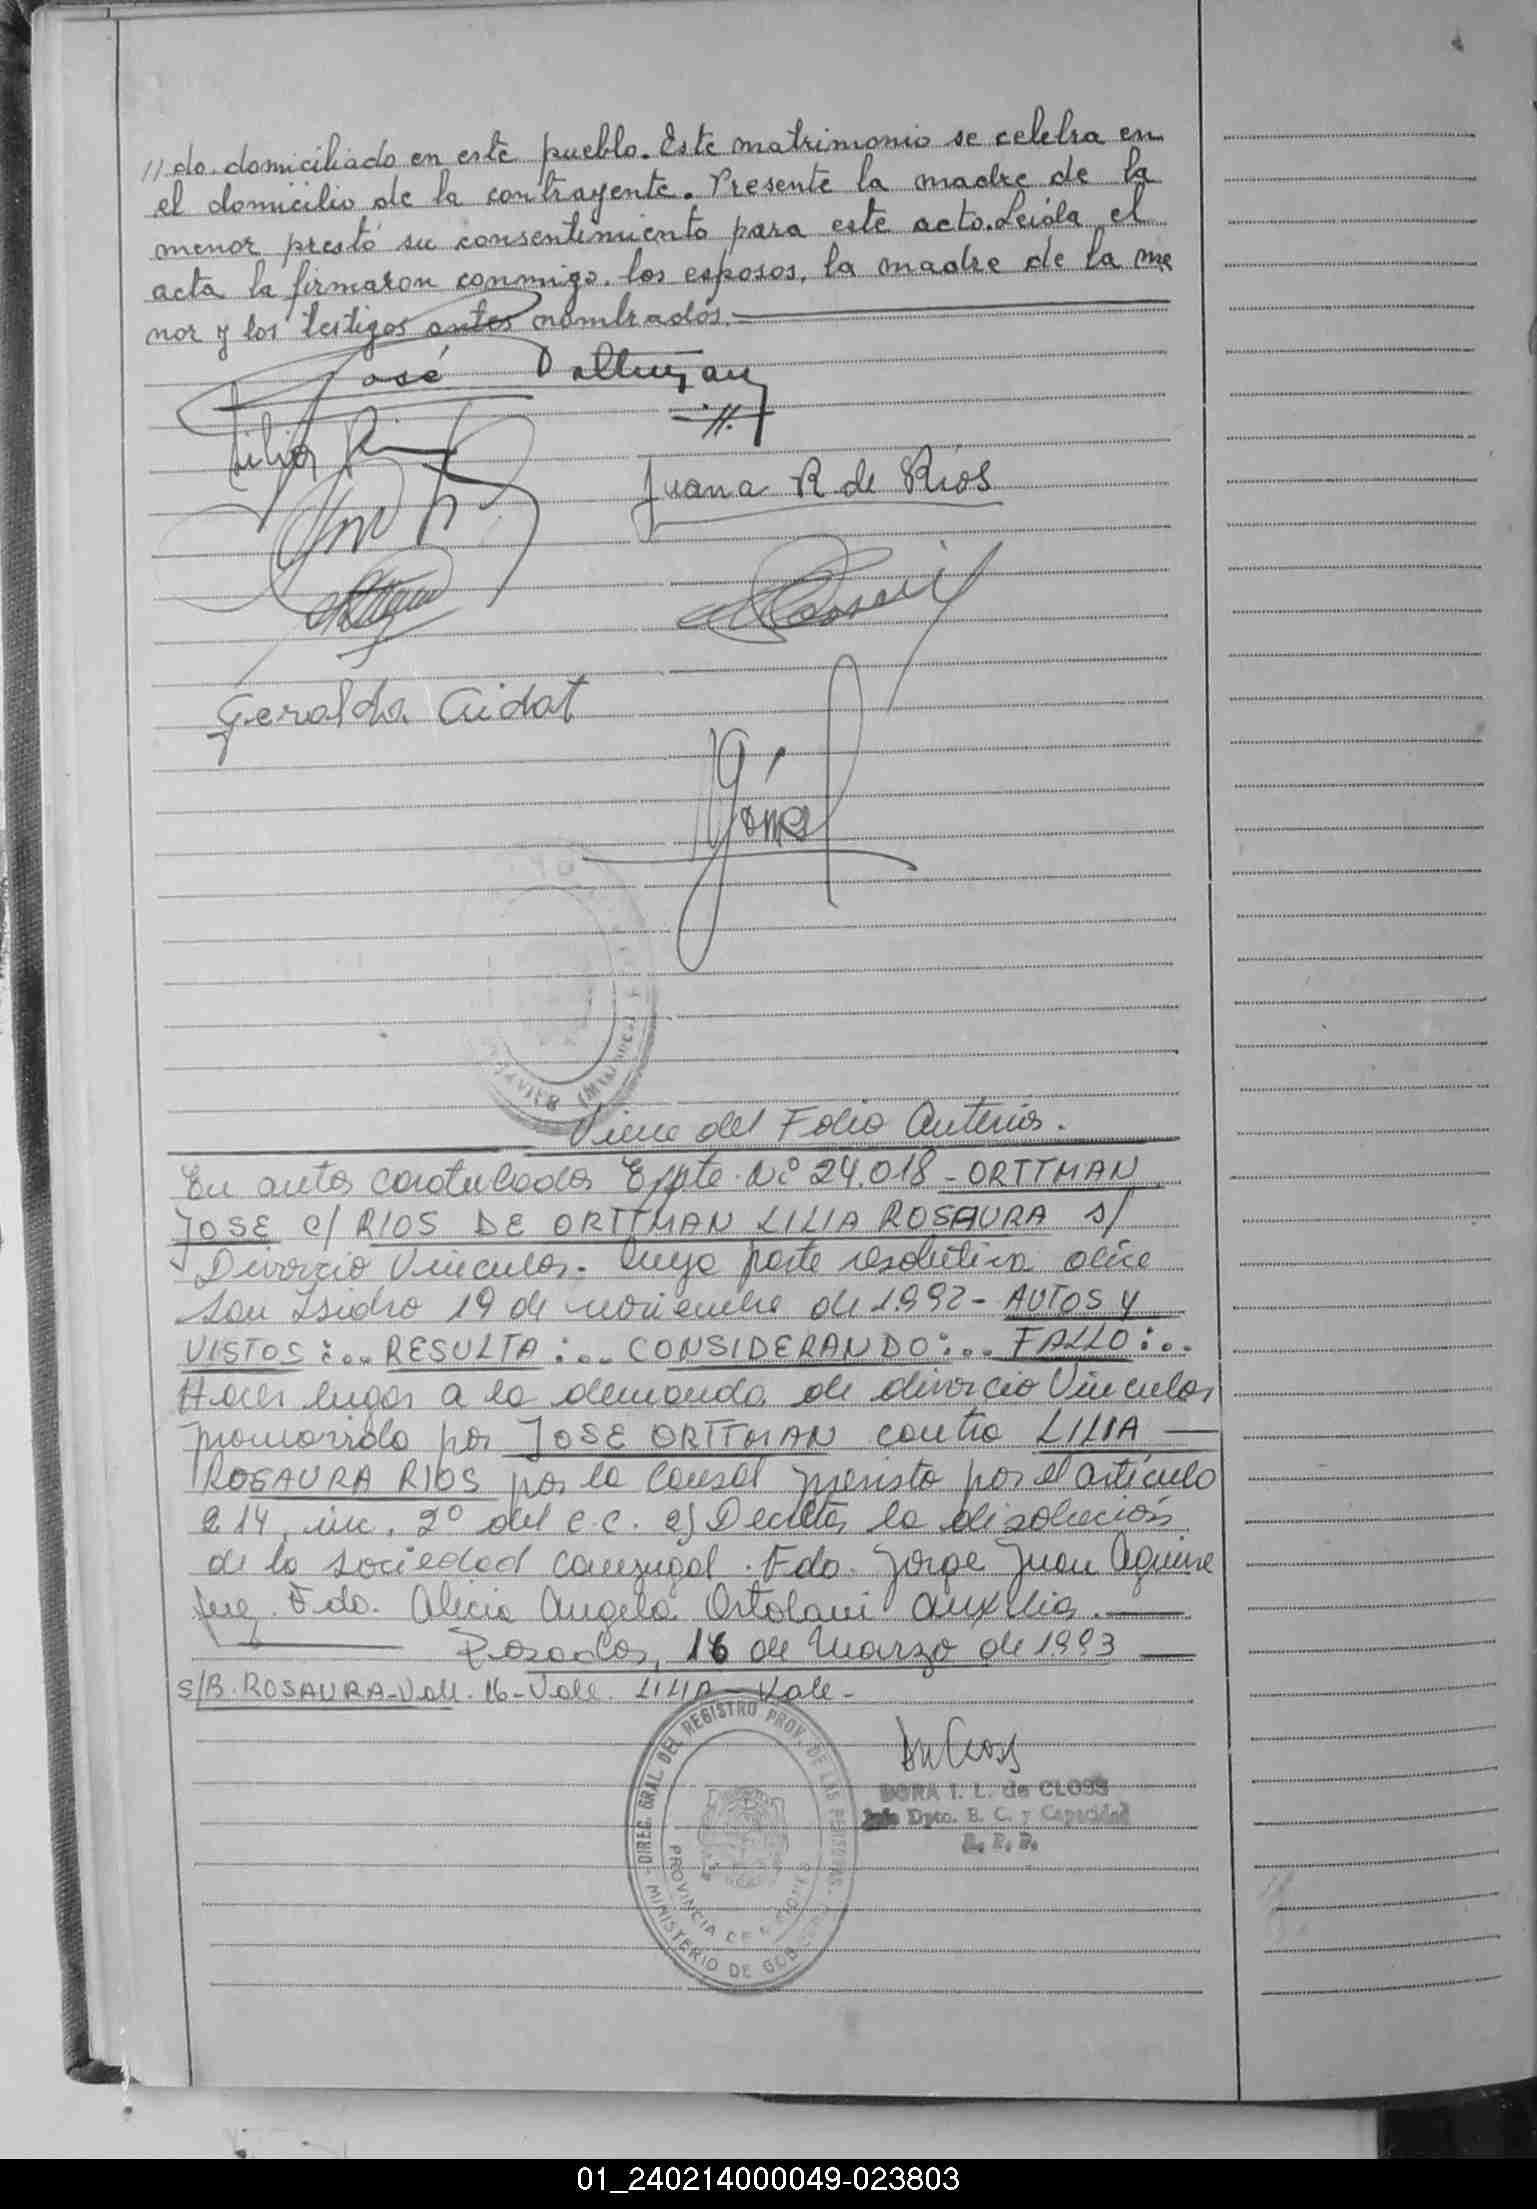 //do. domiciliado en este pueblo. Este matrimonio se celebra en
el domicilio de la contrayente. Presente la madre de la
menor prestó su consentimiento para este acto. Leida el
acta la firmaron conmigo, los esposos, la madre de la me
nor y los testigos antes nombrados.
José
Lilia
Juana R de Ríos
Geralda Aidat
Viene del Folio Anterior.
En autos caratulados Expte. Nº 24.018 - ORTTMAN
JOSE C/ RIOS DE ORTTMAN LILIA ROSAURA s/
Divorcio Vincular. Cuya parte resolutiva dice
San Isidro 19 de noviembre de 1.992 - AUTOS Y
VISTOS:.. RESULTA:.. CONSIDERANDO:.. FALLO:..
Hacer lugar a la demanda de divorcio Vincular
promovida por JOSE ORTTMAN contra LILIA
ROSAURA RIOS por la causal prevista por el artículo
214, inc. 2º del C.C. 2) Decretar la disolución
de la sociedad conyugal. Fdo. Jorge Juan Aguirre
Juez. Fdo. Alicia Angela Ortolani Auxiliar.
Posadas, 16 de Marzo de 1.993
S/B. ROSAURA - Vale. 16 - Vale. LILIA - Vale -
DIREC. GRAL. DEL REGISTRO PROV. DE LAS PERSONAS
PROVINCIA DE MISIONES
MINISTERIO DE GOBIERNO
DORA I. L. de CLOSS
Jefe Dpto. E. C. y Capacidad
R. P. P.
01_240214000049-023803